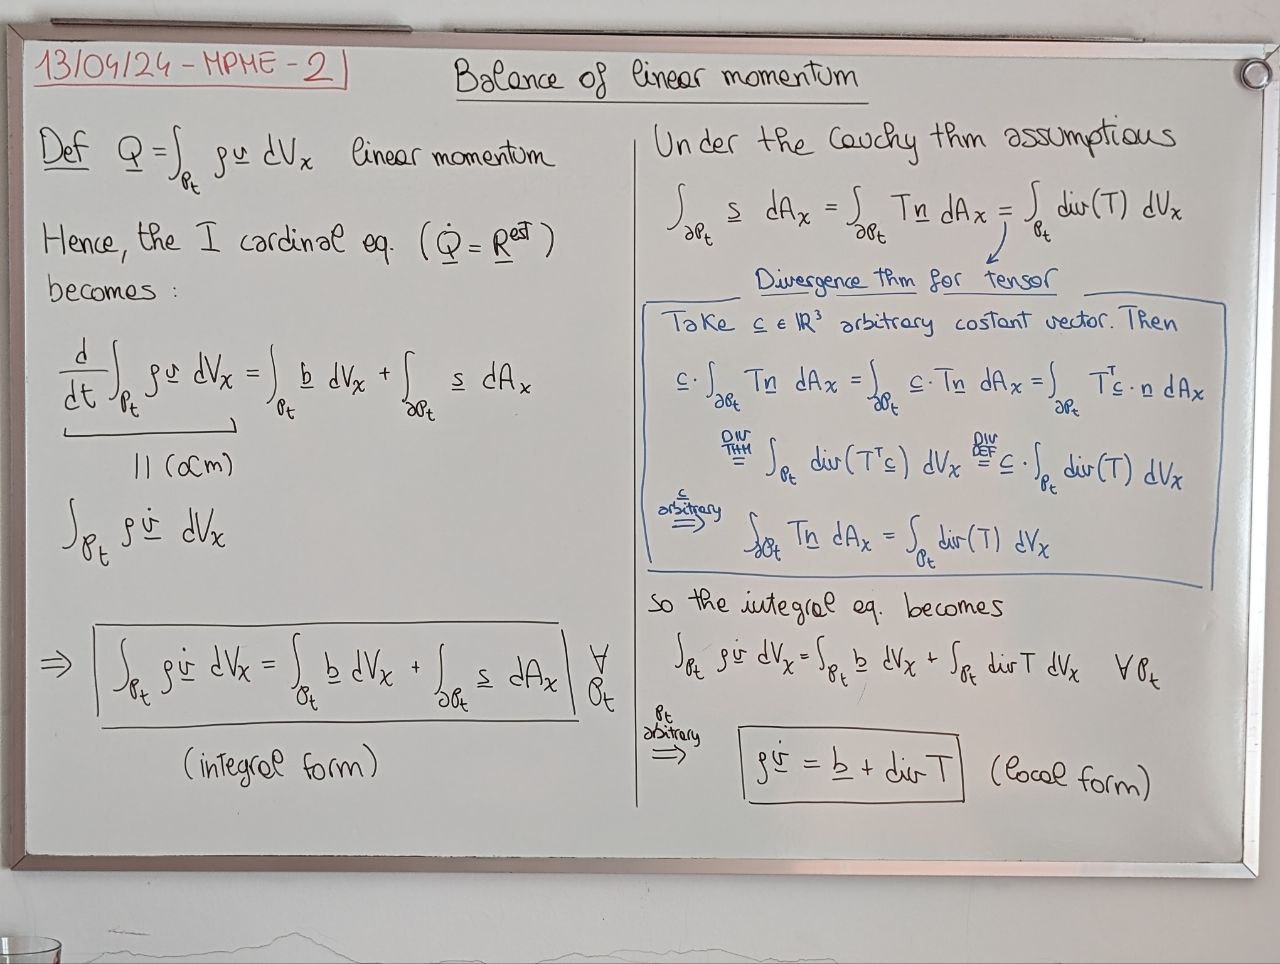 13/04/24 - MPME - 2
Balance of linear momentum
Def Q = ∫_{𝒫t} ρv dVx linear momentum
Hence, the I cardinal eq. (Q̇ = R^{est})
becomes :
d/dt ∫_{𝒫t} ρv dVx = ∫_{𝒫t} b dVx + ∫_{∂𝒫t} s dAx
|| (OCM)
∫_{𝒫t} ρv̇ dVx
⇒ ∫_{𝒫t} ρv̇ dVx = ∫_{𝒫t} b dVx + ∫_{∂𝒫t} s dAx ∀ 𝒫t
(integral form)
Under the Cauchy thm assumptions
∫_{∂𝒫t} s dAx = ∫_{∂𝒫t} Tn dAx = ∫_{𝒫t} div(T) dVx
Divergence thm for tensor
Take c ∈ ℝ³ arbitrary costant vector. Then
c · ∫_{∂𝒫t} Tn dAx = ∫_{∂𝒫t} c · Tn dAx = ∫_{∂𝒫t} Tᵀc · n dAx
DIV THM = ∫_{𝒫t} div(Tᵀc) dVx DIV DEF = c · ∫_{𝒫t} div(T) dVx
c arbitrary ⇒ ∫_{∂𝒫t} Tn dAx = ∫_{𝒫t} div(T) dVx
so the integral eq. becomes
∫_{𝒫t} ρv̇ dVx = ∫_{𝒫t} b dVx + ∫_{𝒫t} div T dVx ∀ 𝒫t
𝒫t arbitrary ⇒ ρv̇ = b + div T (local form)